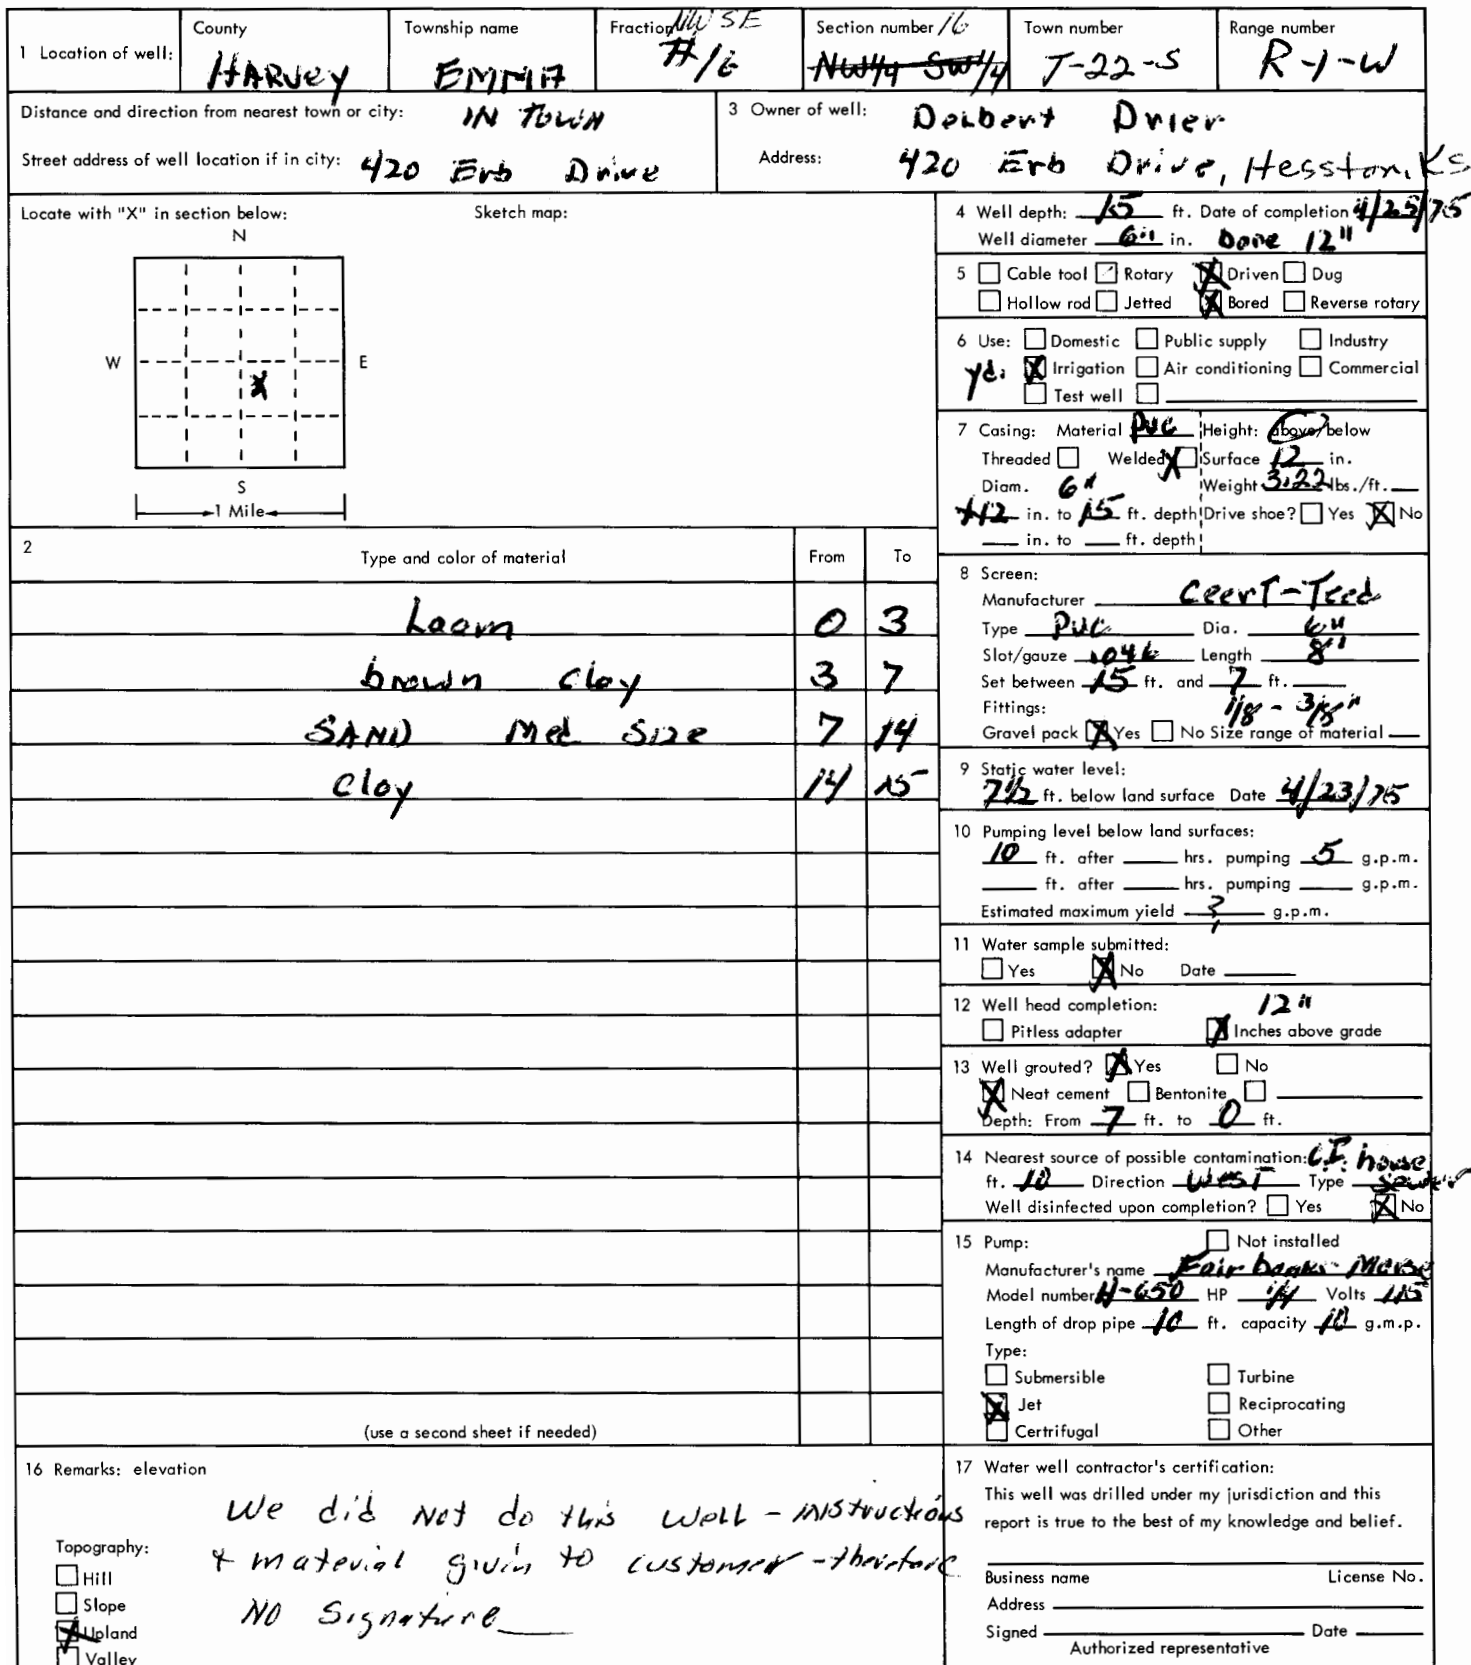 County Township name Fraction NW SE Section number 16 Town number Range number
1 Location of well: HARVEY EMMA #16 NW1/4 SW1/4 T-22-S R-1-W
Distance and direction from nearest town or city: IN TOWN
Street address of well location if in city: 420 Erb Drive
3 Owner of well: Delbert Drier
Address: 420 Erb Drive, Hesston, KS
Locate with "X" in section below: Sketch map:
N
W E
X
S
1 Mile
2 Type and color of material From To
Loam 0 3
brown clay 3 7
SAND Med Size 7 14
Clay 14 15
(use a second sheet if needed)
4 Well depth: 15 ft. Date of completion 4/25/75
Well diameter 6" in. Bore 12"
5 Cable tool Rotary X Driven Dug
Hollow rod Jetted X Bored Reverse rotary
6 Use: Domestic Public supply Industry
yd. X Irrigation Air conditioning Commercial
Test well
7 Casing: Material PVC Height: above/below
Threaded Welded X Surface 12 in.
Diam. 6" Weight 3.22 lbs./ft.
+12 in. to 15 ft. depth Drive shoe? Yes X No
in. to ft. depth
8 Screen:
Manufacturer CeerT-Teed
Type PVC Dia. 6"
Slot/gauze .046 Length 8'
Set between 15 ft. and 7 ft.
Fittings: 1/8 - 3/8"
Gravel pack X Yes No Size range of material
9 Static water level:
7 1/2 ft. below land surface Date 4/23/75
10 Pumping level below land surfaces:
10 ft. after hrs. pumping 5 g.p.m.
ft. after hrs. pumping g.p.m.
Estimated maximum yield ? g.p.m.
11 Water sample submitted:
Yes X No Date
12 Well head completion: 12"
Pitless adapter X Inches above grade
13 Well grouted? X Yes No
X Neat cement Bentonite
Depth: From 7 ft. to 0 ft.
14 Nearest source of possible contamination: C.I. house
ft. 10 Direction West Type sewer
Well disinfected upon completion? Yes X No
15 Pump: Not installed
Manufacturer's name Fairbanks-Morse
Model number H-650 HP 1/4 Volts 115
Length of drop pipe 10 ft. capacity 10 g.m.p.
Type:
Submersible Turbine
X Jet Reciprocating
Certrifugal Other
16 Remarks: elevation
We did Not do this Well - INStructions
& material given to customer - therefore
NO Signature
Topography:
Hill
Slope
X Upland
Valley
17 Water well contractor's certification:
This well was drilled under my jurisdiction and this
report is true to the best of my knowledge and belief.
Business name License No.
Address
Signed Date
Authorized representative